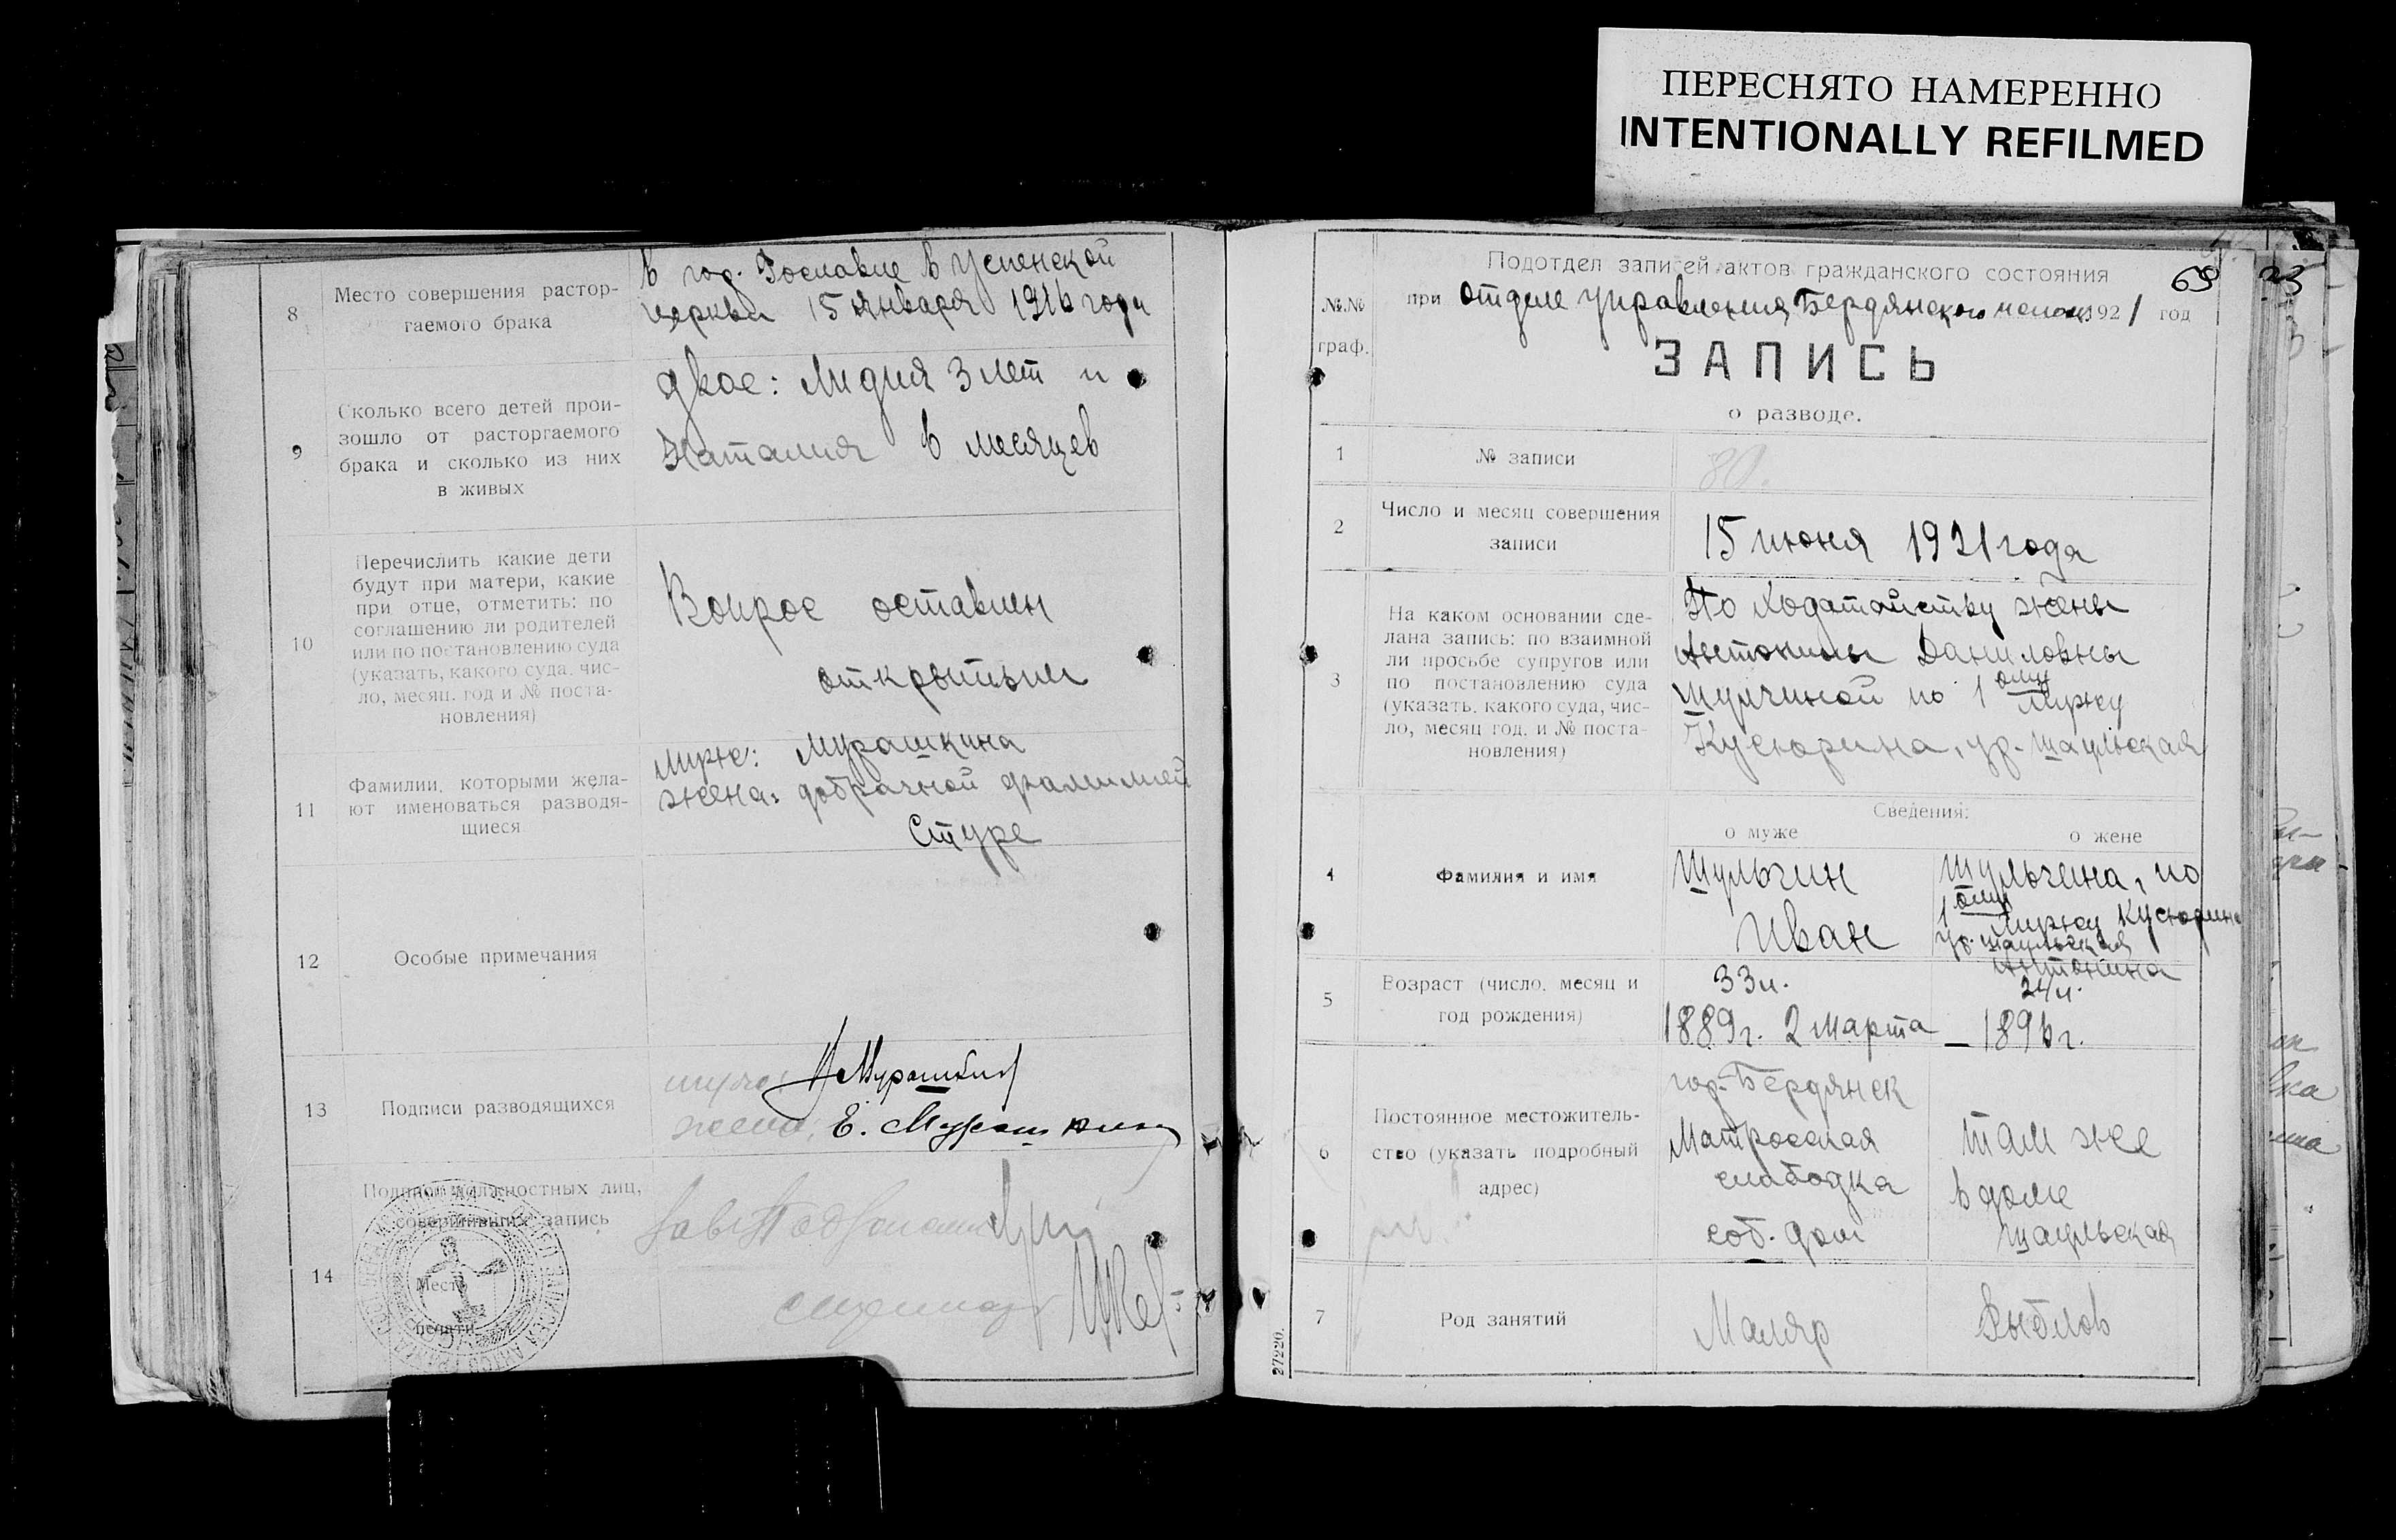 ПЕРЕСНЯТО НАМЕРЕННО
INTENTIONALLY REFILMED
8
Место совершения растор-
гаемого брака
в гор. Рославле в Успенской
церкви 15 января 1916 года
9
Сколько всего детей прои-
зошло от расторгаемого
брака и сколько из них
в живых
двое: Лидия 3 лет и
Наталия 6 месяцев
10
Перечислить какие дети
будут при матери, какие
при отце, отметить: по
соглашению ли родителей
или по постановлению суда
(указать, какого суда, чис-
ло, месяц, год и № поста-
новления)
Вопрос оставлен
открытым
11
Фамилии, которыми жела-
ют именоваться разводя-
щиеся
муж: Мурашкина
жена: добрачной фамилией
Стуре
12
Особые примечания
13
Подписи разводящихся
муж: Мурашкин
жена: Е. Мурашкина
14
Подписи должностных лиц,
совершивших запись
Место
печати
69 25
Подотдел записей актов гражданского состояния
№№
граф.
при Отделе Управления Бердянского 1921 год
ЗАПИСЬ
о разводе.
1
№ записи
80.
2
Число и месяц совершения
записи
15 июня 1921 года
3
На каком основании сде-
лана запись: по взаимной
ли просьбе супругов или
по постановлению суда
(указать, какого суда, чис-
ло, месяц год, и № поста-
новления)
По ходатайству жены
Антонины Даниловны
Шульгиной по 1 ому мужу
Кусюрина, ур. Шаульская
Сведения:
о муже
о жене
4
Фамилия и имя
Шульгин
Иван
Шульгина, по
1 ому мужу Кусюрина
ур. Шаульская
Антонина
5
Возраст (число, месяц и
год рождения)
33 л.
1889 г. 2 марта
24 л.
— 1896 г.
6
Постоянное местожитель-
ство (указать подробный
адрес)
гор. Бердянск
Матросская
слободка
соб. дом
там же
в доме
Шаульская
7
Род занятий
Маляр
Рыблов
27220.